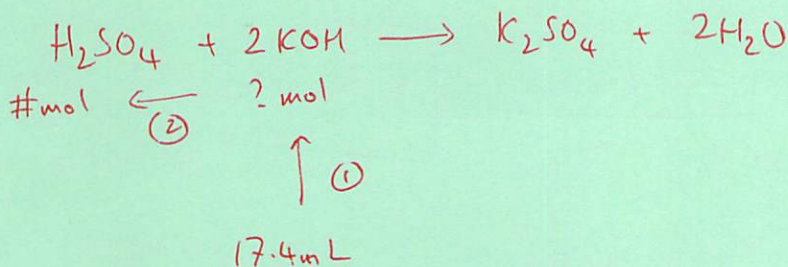 H₂SO₄ + 2KOH ⟶ K₂SO₄ + 2H₂O
#mol ← ? mol
②
↑ ①
17.4mL